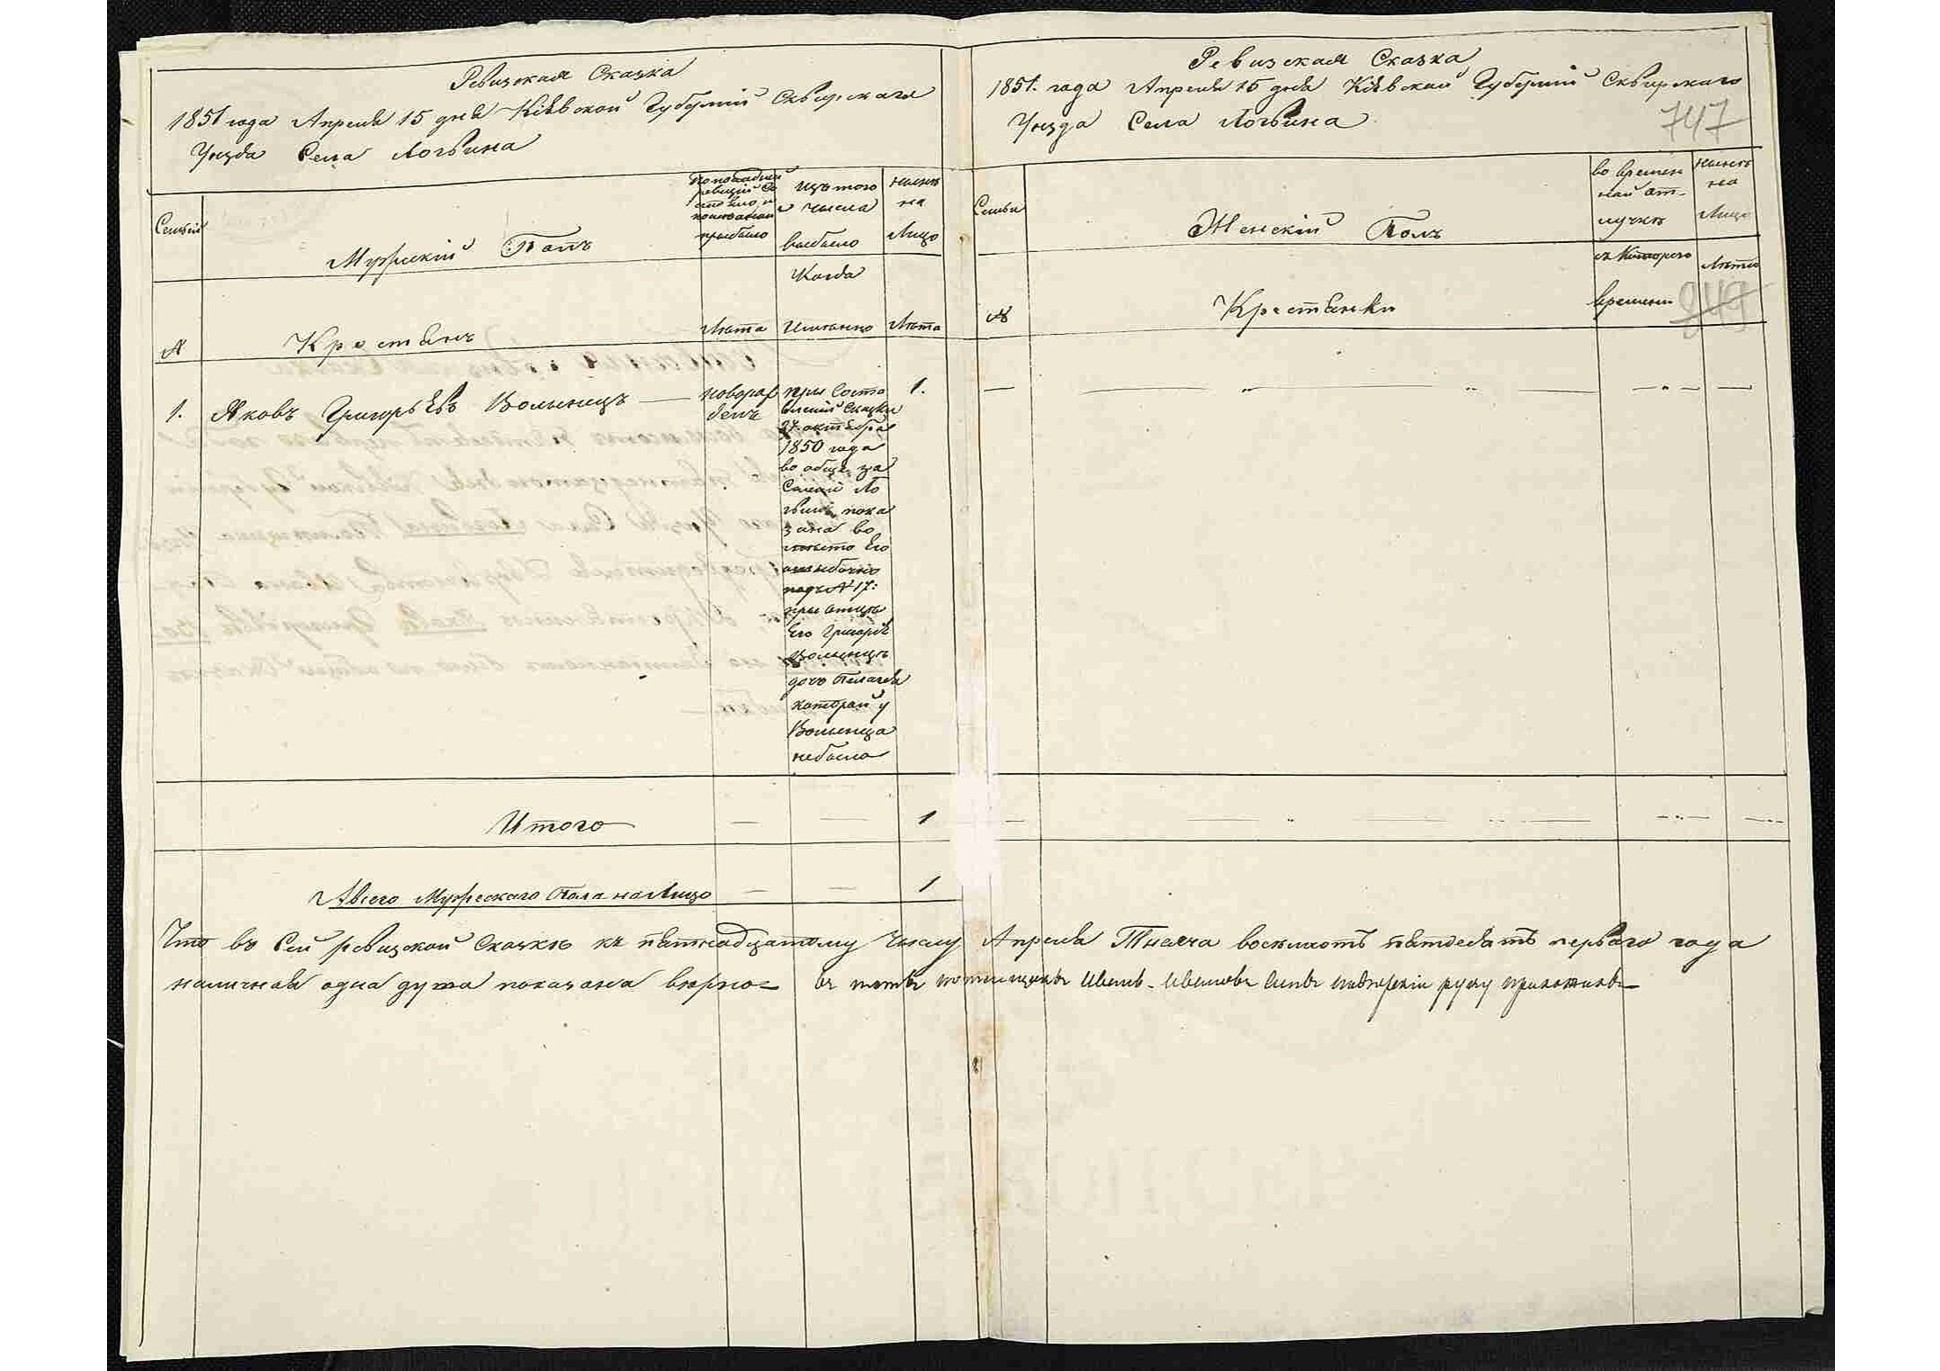 Ревизская Сказка
1851 года Апреля 15 дня Кіевской Губерніи Сквирскаго
Уѣзда Села Логвина
Семьи
Мужескій Полъ
По последней
ревизіи со
стояло и
после оной
прибыло
Изъ того
числа
выбыло
Ныне
на
Лицо
Когда
№
Крестьянъ
Лѣта
Именно
Лѣта
1.
Яковъ Григорьевъ Волынецъ
новорож
денъ
при соста
вленіи Сказки
27 октября
1850 года
во общей за
Селомъ Ло
гвинъ пока
зана во
мѣсто Его
ошибочно
подъ № 17:
при отцѣ
Его Григоріѣ
Волынцѣ
дочь Пелагея
которой у
Волынца
небыло
1.
Итого — — 1
А всего Мужескаго Пола на Лицо — — 1
Ревизская Сказка
1851. года Апреля 15 дня Кіевской Губерніи Сквирскаго
Уѣзда Села Логвина
747
Семьи
Женскій Полъ
во времен
ной от-
лучкѣ
Ныне
на
Лицо
съ Котораго
времени
Лѣта
949
№
Крестьянки
Что въ Сей ревизской Сказкѣ къ пятнадцатому Числу Апреля Тысяча восемьсотъ пятьдесятъ перваго года
наличная одна душа показана верно въ томъ помещикъ Иванъ Ивановъ Сынъ руку приложилъ